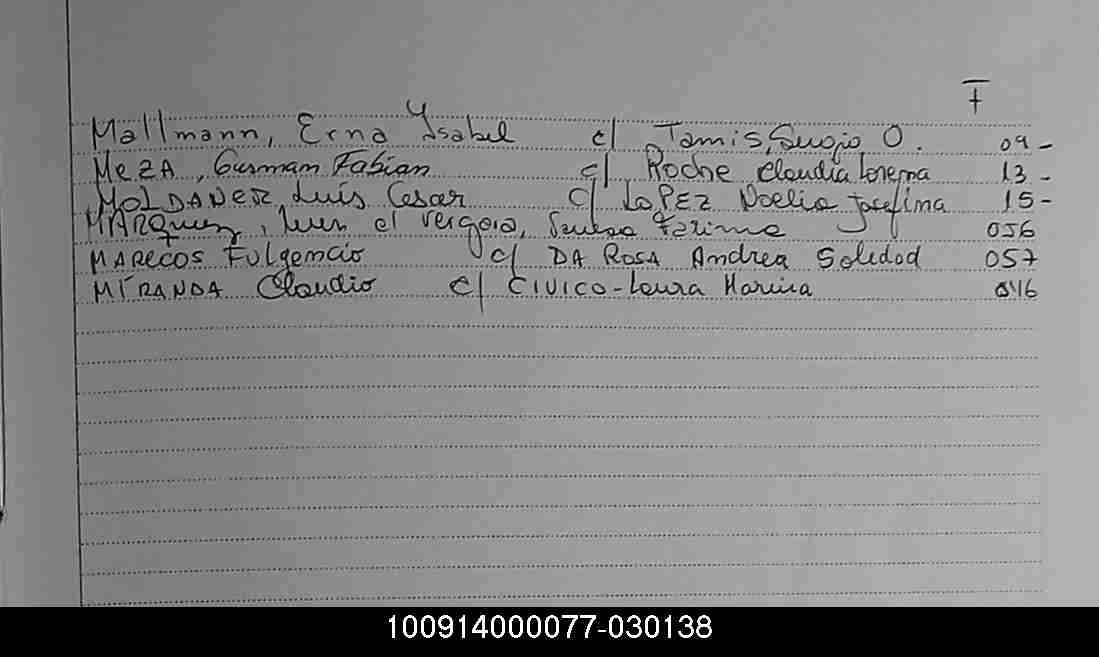 F
Mallmann, Erna Ysabel c/ Tamis, Sergio O. 09 -
MEZA, Gusmam Fabian c/ Roche Claudia Lorena 13 -
MOLDANER, Luis Cesar c/ LoPEZ Noelia Josefina 15 -
MARquez, c/ Fatima 056
MARECOS Fulgencio c/ DA ROSA Andrea Soledad 057
MIRANDA Claudio c/ CIVICO - Laura Marina 046
100914000077-030138